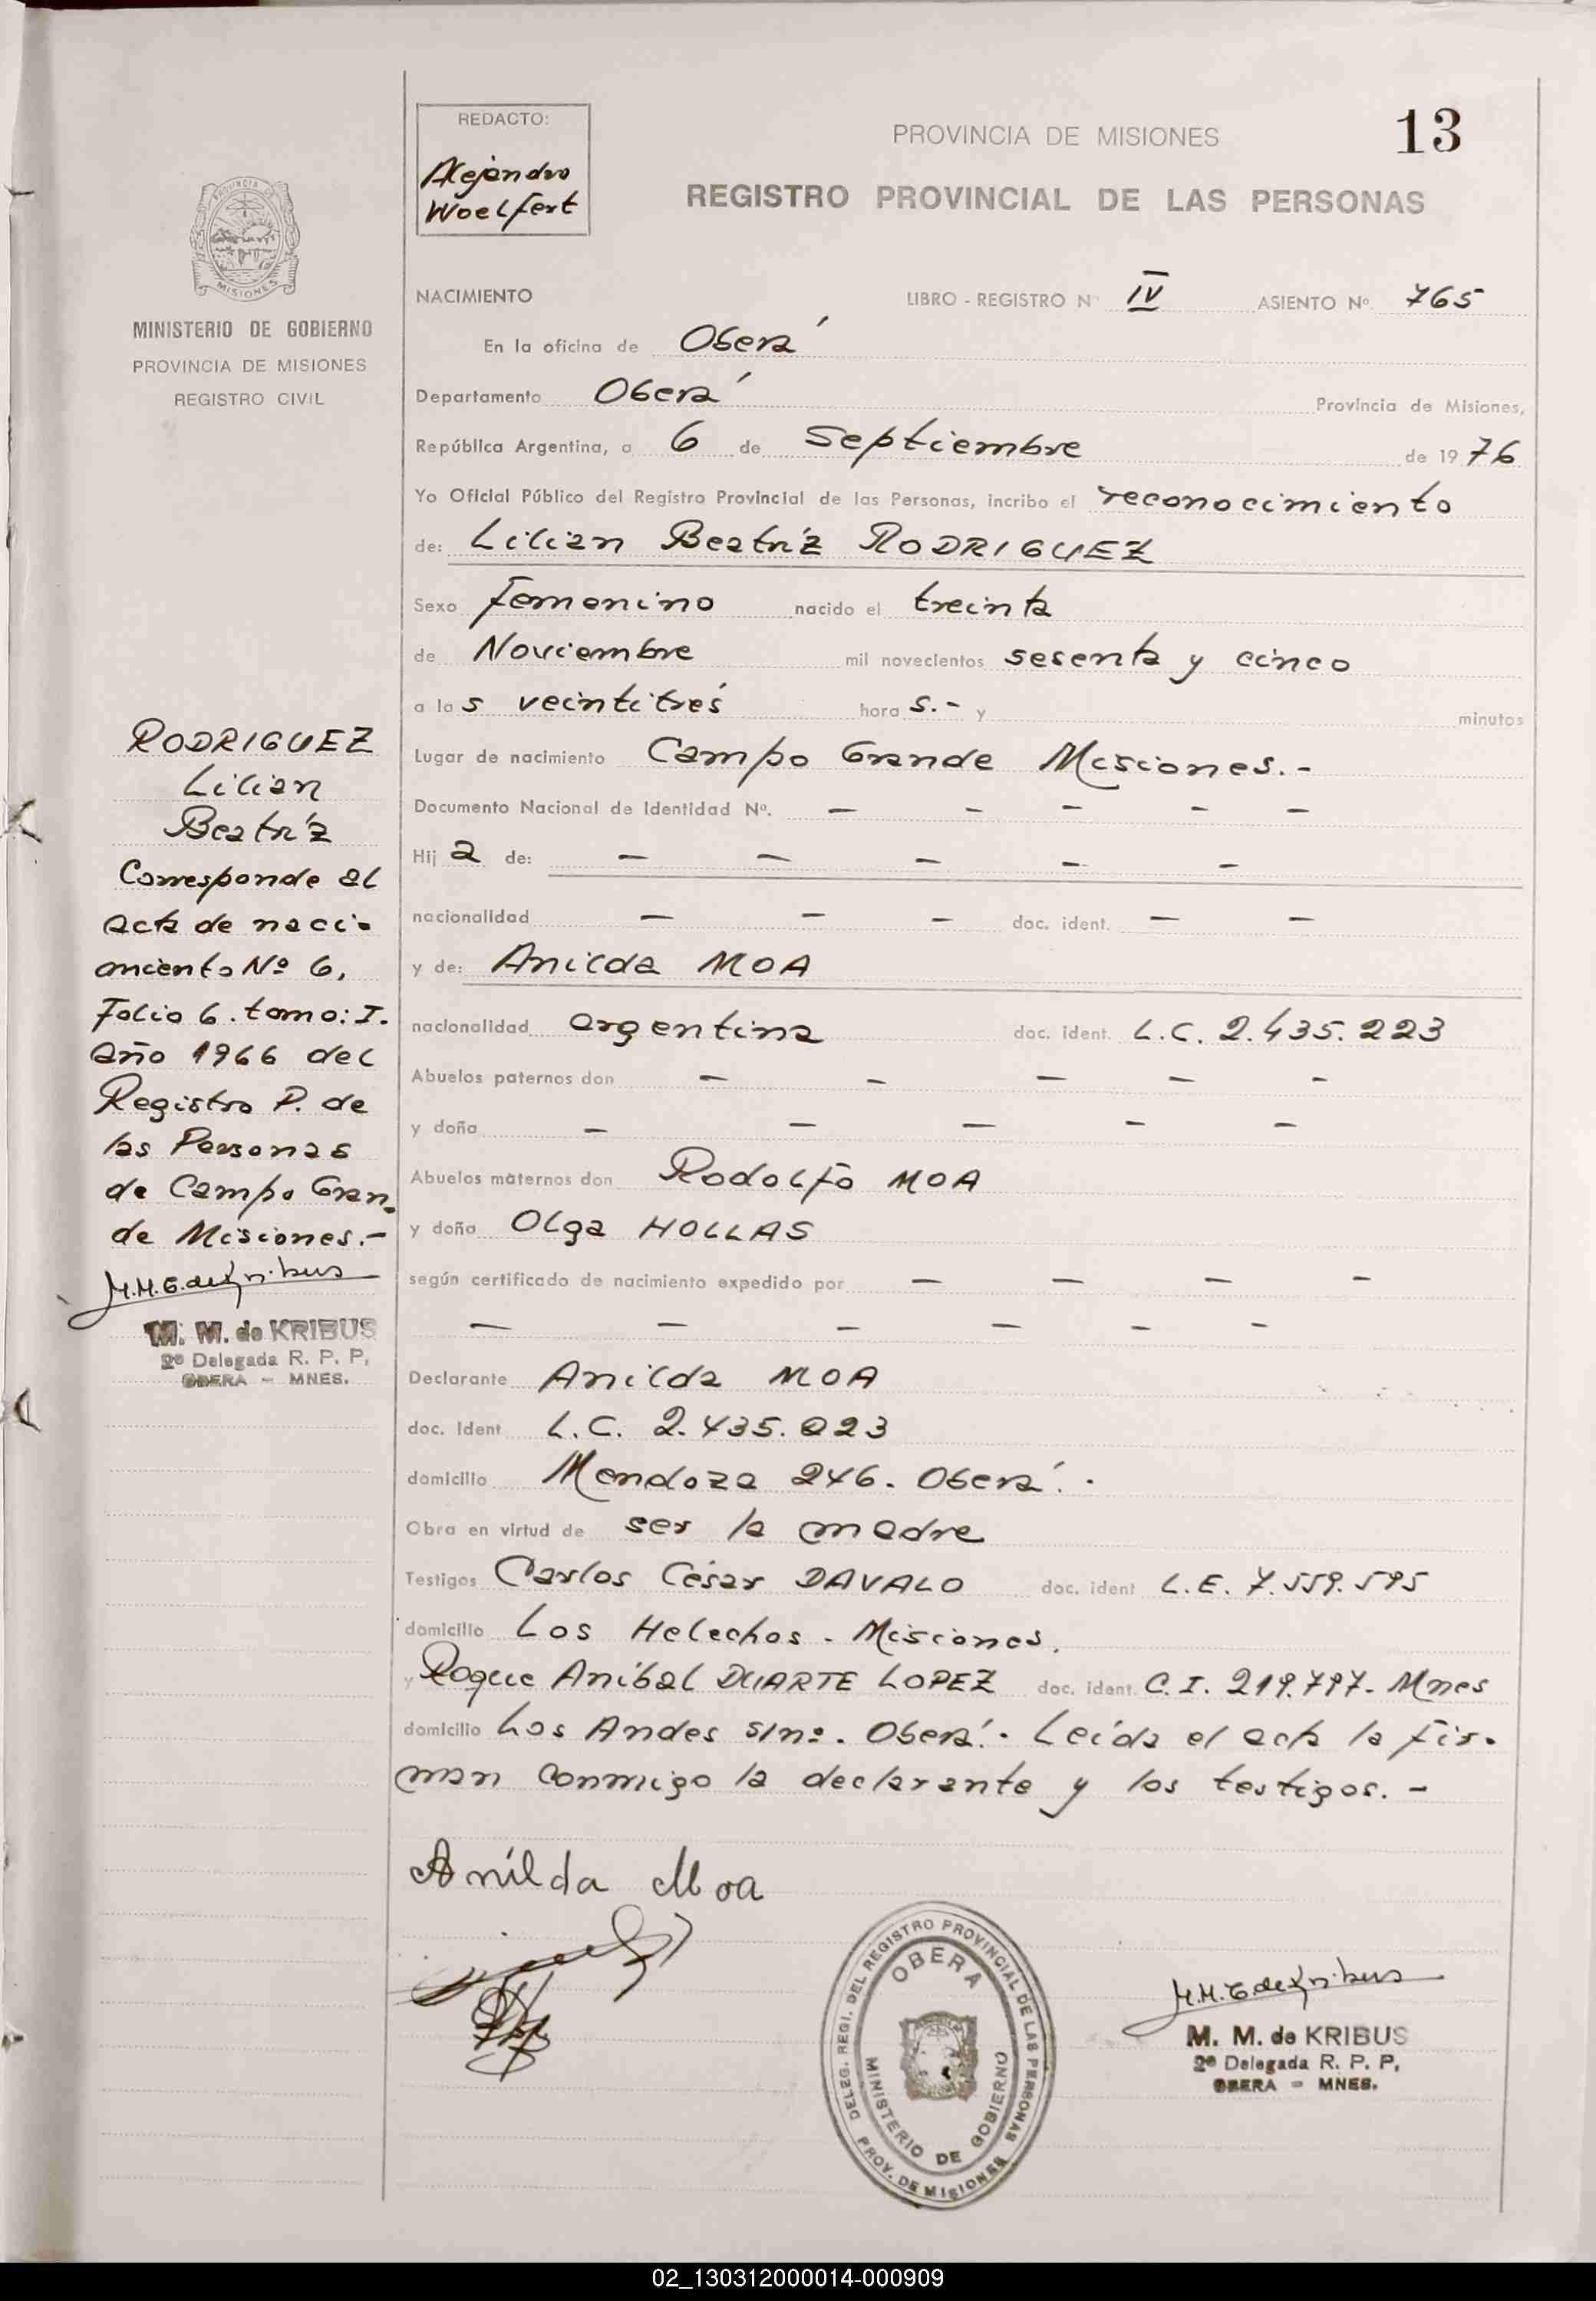 13
REDACTO:
Alejandro
Woelfert
PROVINCIA DE MISIONES
REGISTRO PROVINCIAL DE LAS PERSONAS
PROVINCIA DE
MISIONES
MINISTERIO DE GOBIERNO
PROVINCIA DE MISIONES
REGISTRO CIVIL
NACIMIENTO LIBRO - REGISTRO Nº IV ASIENTO Nº 765
En la oficina de Oberá
Departamento Oberá Provincia de Misiones,
República Argentina, a 6 de septiembre de 1976
Yo Oficial Público del Registro Provincial de las Personas, incribo el reconocimiento
de: Lilian Beatríz RODRIGUEZ
Sexo femenino nacido el treinta
de Noviembre mil novecientos sesenta y cinco
a las veintitrés horas.- y minutos
Lugar de nacimiento Campo Grande Misiones.-
Documento Nacional de Identidad Nº. — — — — —
Hija de: — — — — —
nacionalidad — — — doc. ident. — —
y de: Anilda MOA
nacionalidad argentina doc. ident. L.C. 2.435.223
Abuelos paternos don — — — — —
y doña — — — — —
Abuelos maternos don Rodolfo MOA
y doña Olga HOLLAS
según certificado de nacimiento expedido por — — — —
— — — — — —
Declarante Anilda MOA
doc. Ident L.C. 2.435.223
domicilio Mendoza 246. Oberá.-
Obra en virtud de ser la madre
Testigos Carlos César DAVALO doc. ident L.E. 7.559.595
domicilio Los Helechos - Misiones.
y Roque Aníbal DUARTE LOPEZ doc. ident. C.I. 219.797- Mnes
domicilio Los Andes s/nº. Oberá.- Leída el acta la fir-
man conmigo la declarante y los testigos.-
RODRIGUEZ
Lilian
Beatríz
Corresponde al
acta de naci-
miento Nº 6,
Folio 6. tomo: I.
año 1966 del
Registro P. de
las Personas
de Campo Gran-
de Misiones.-
M.M.G. de Kribus
M. M. de KRIBUS
2º Delegada R. P. P.
OBERA - MNES.
Anilda Moa
DELEG. REGI. DEL REGISTRO PROVINCIAL DE LAS PERSONAS
OBERA
MINISTERIO DE GOBIERNO
PROV. DE MISIONES
M.M.G. de Kribus
M. M. de KRIBUS
2º Delegada R. P. P.
OBERA - MNES.
02_130312000014-000909